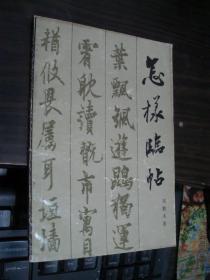 怎樣臨帖
葉飄飖遊鵾獨運
霄耽讀翫市寓目
輶攸畏屬耳垣牆